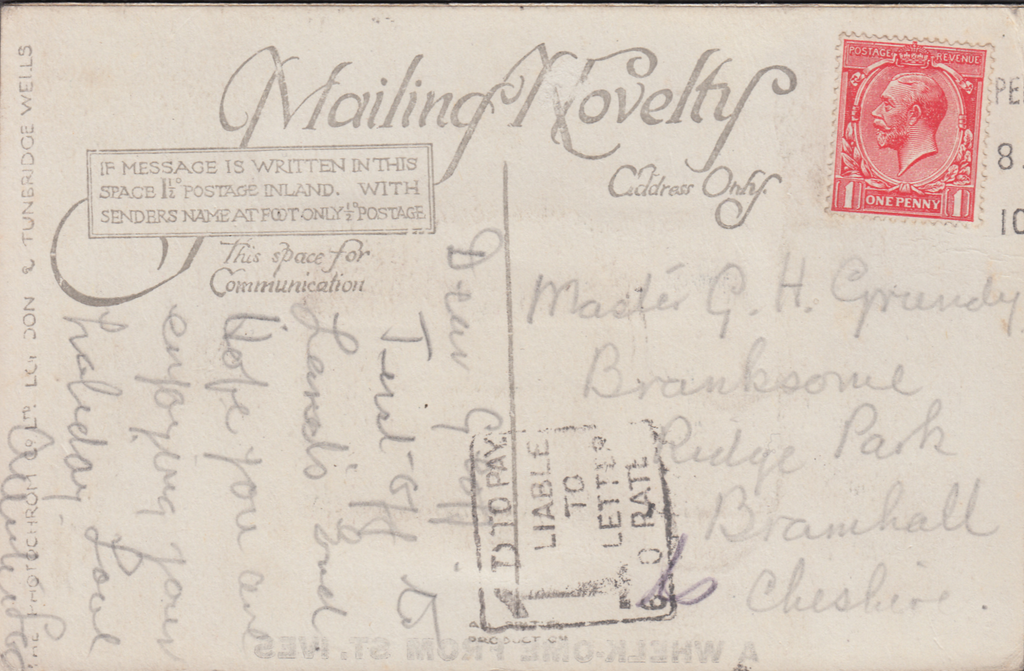 Mailing Novelty
POSTAGE REVENUE
1 ONE PENNY 1
PE
8
10
IF MESSAGE IS WRITTEN IN THIS
SPACE 1½D POSTAGE INLAND. WITH
SENDERS NAME AT FOOT ONLY ½D POSTAGE
This space for
Communication
Address Only.
Dear
Just off to
Land's End
Hope you are
enjoying your
holiday
Love
Master G. H. Grundy
Branksome
Ridge Park
Bramhall
Cheshire.
1D TO PAY
LIABLE
TO
LETTER
RATE
PRODUCTION
A WHELK-OME FROM ST. IVES
THE PHOTOCHROM CO LTD. LONDON & TUNBRIDGE WELLS